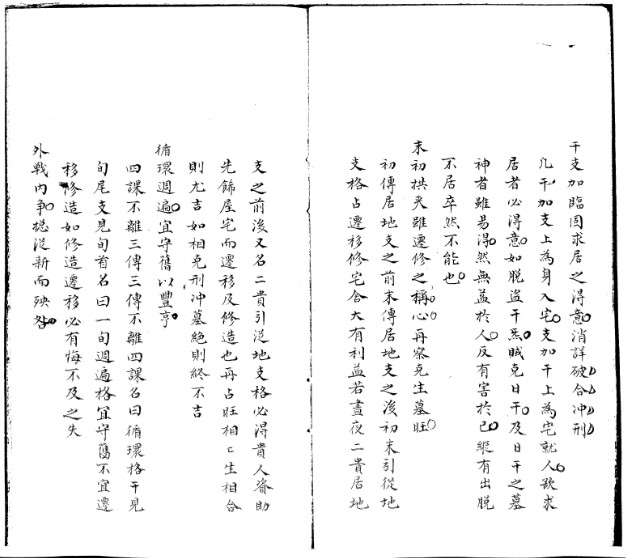 干支加臨固求居之得意消詳破合冲刑
凡干加支上為身入宅支加干上為宅就人欲求
居者必得意如脫盜干炁賊克日干及日干之墓
神者雖易得然無益於人反有害於己縱有出脫
不居卒然不能也
末初拱夾雖遷修之稱心再察克生墓旺
初傳居地支之前末傳居地支之後初末引從地
支格占遷移修宅舍大有利益若晝夜二貴居地
支之前後又名二貴引從地支格必得貴人資助
先飾屋宅而遷移及修造也再占旺相〻生相合
則尤吉如相克刑冲墓絕則終不吉
循環週遍宜守舊以豐亨
四課不離三傳三傳不離四課名曰循環格干見
旬尾支見旬首名曰一旬週遍格宜守舊不宜遷
移修造如修造遷移必有悔不及之失
外戰內爭總從新而殃咎